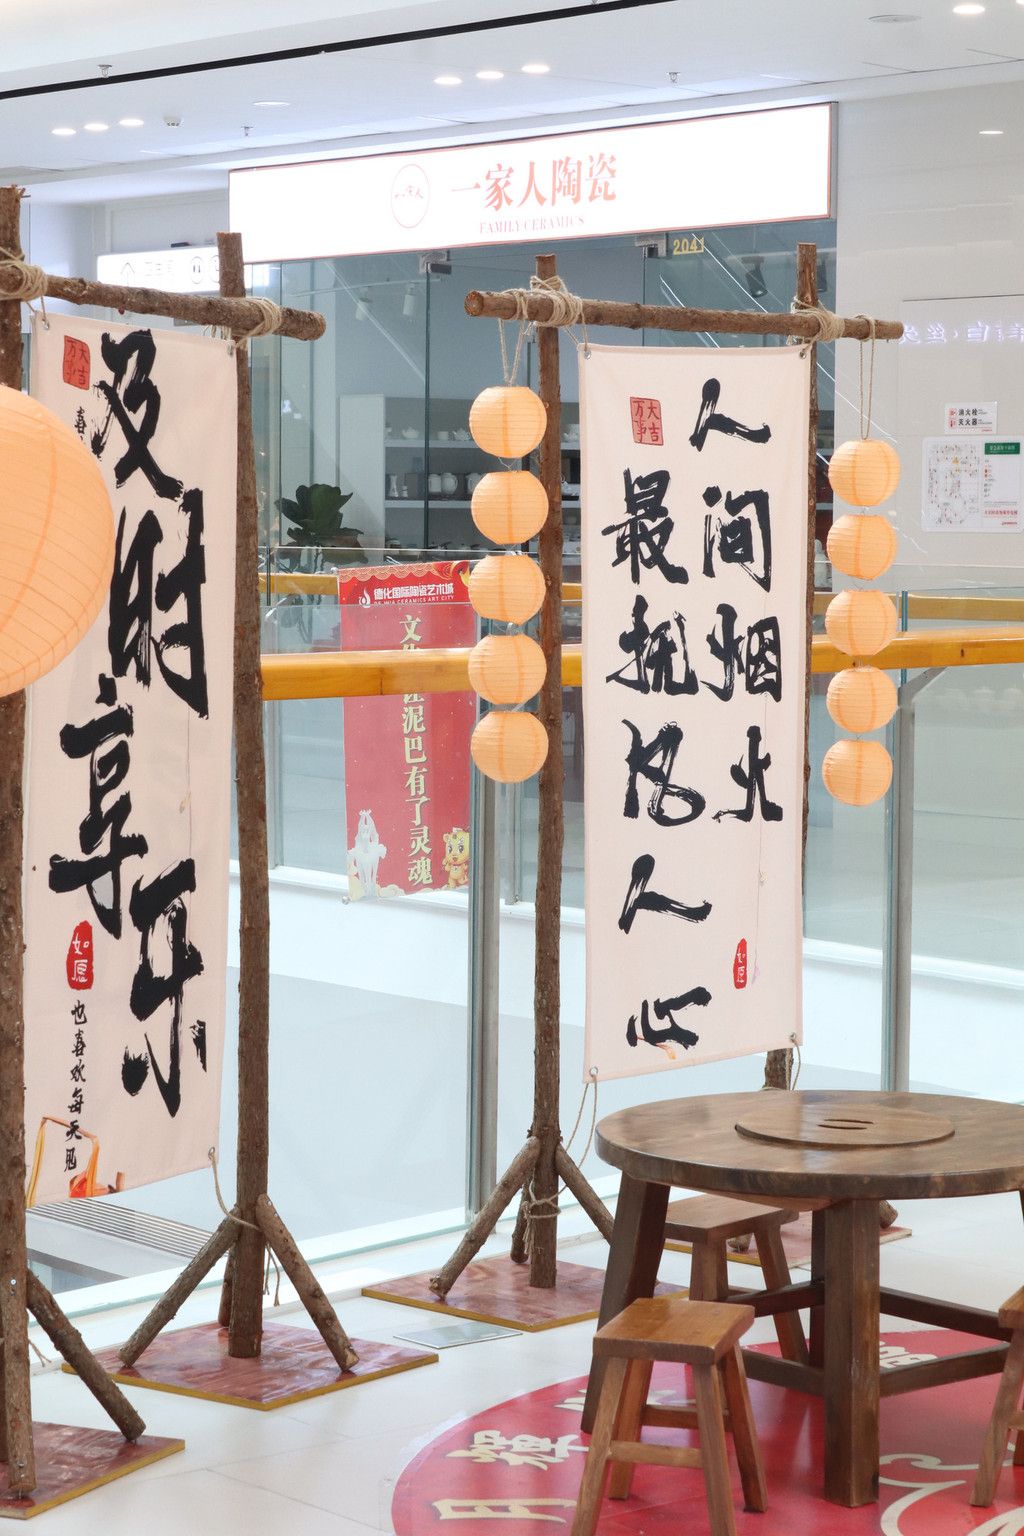 一家人
一家人陶瓷
FAMILY CERAMICS
2041
卫生间
大吉
万事
及时享乐
喜
如愿
也喜欢每天
大吉
万事
人间烟火
最抚凡人心
如愿
德化国际陶瓷艺术城
DE HUA CERAMICS ART CITY
文
泥巴有了灵魂
消火栓
灭火器
月